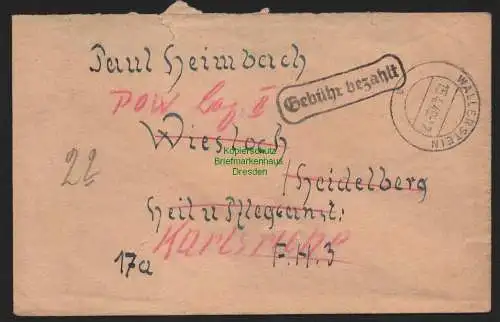 Paul Heimbach
Gebühr bezahlt
WALLERSTEIN
POW Lag. II
Wiesloch
Kopierschutz
Briefmarkenhaus
Dresden
22
/Heidelberg
Heil u Pflegeanst:
Karlsruhe
17a F.H.3